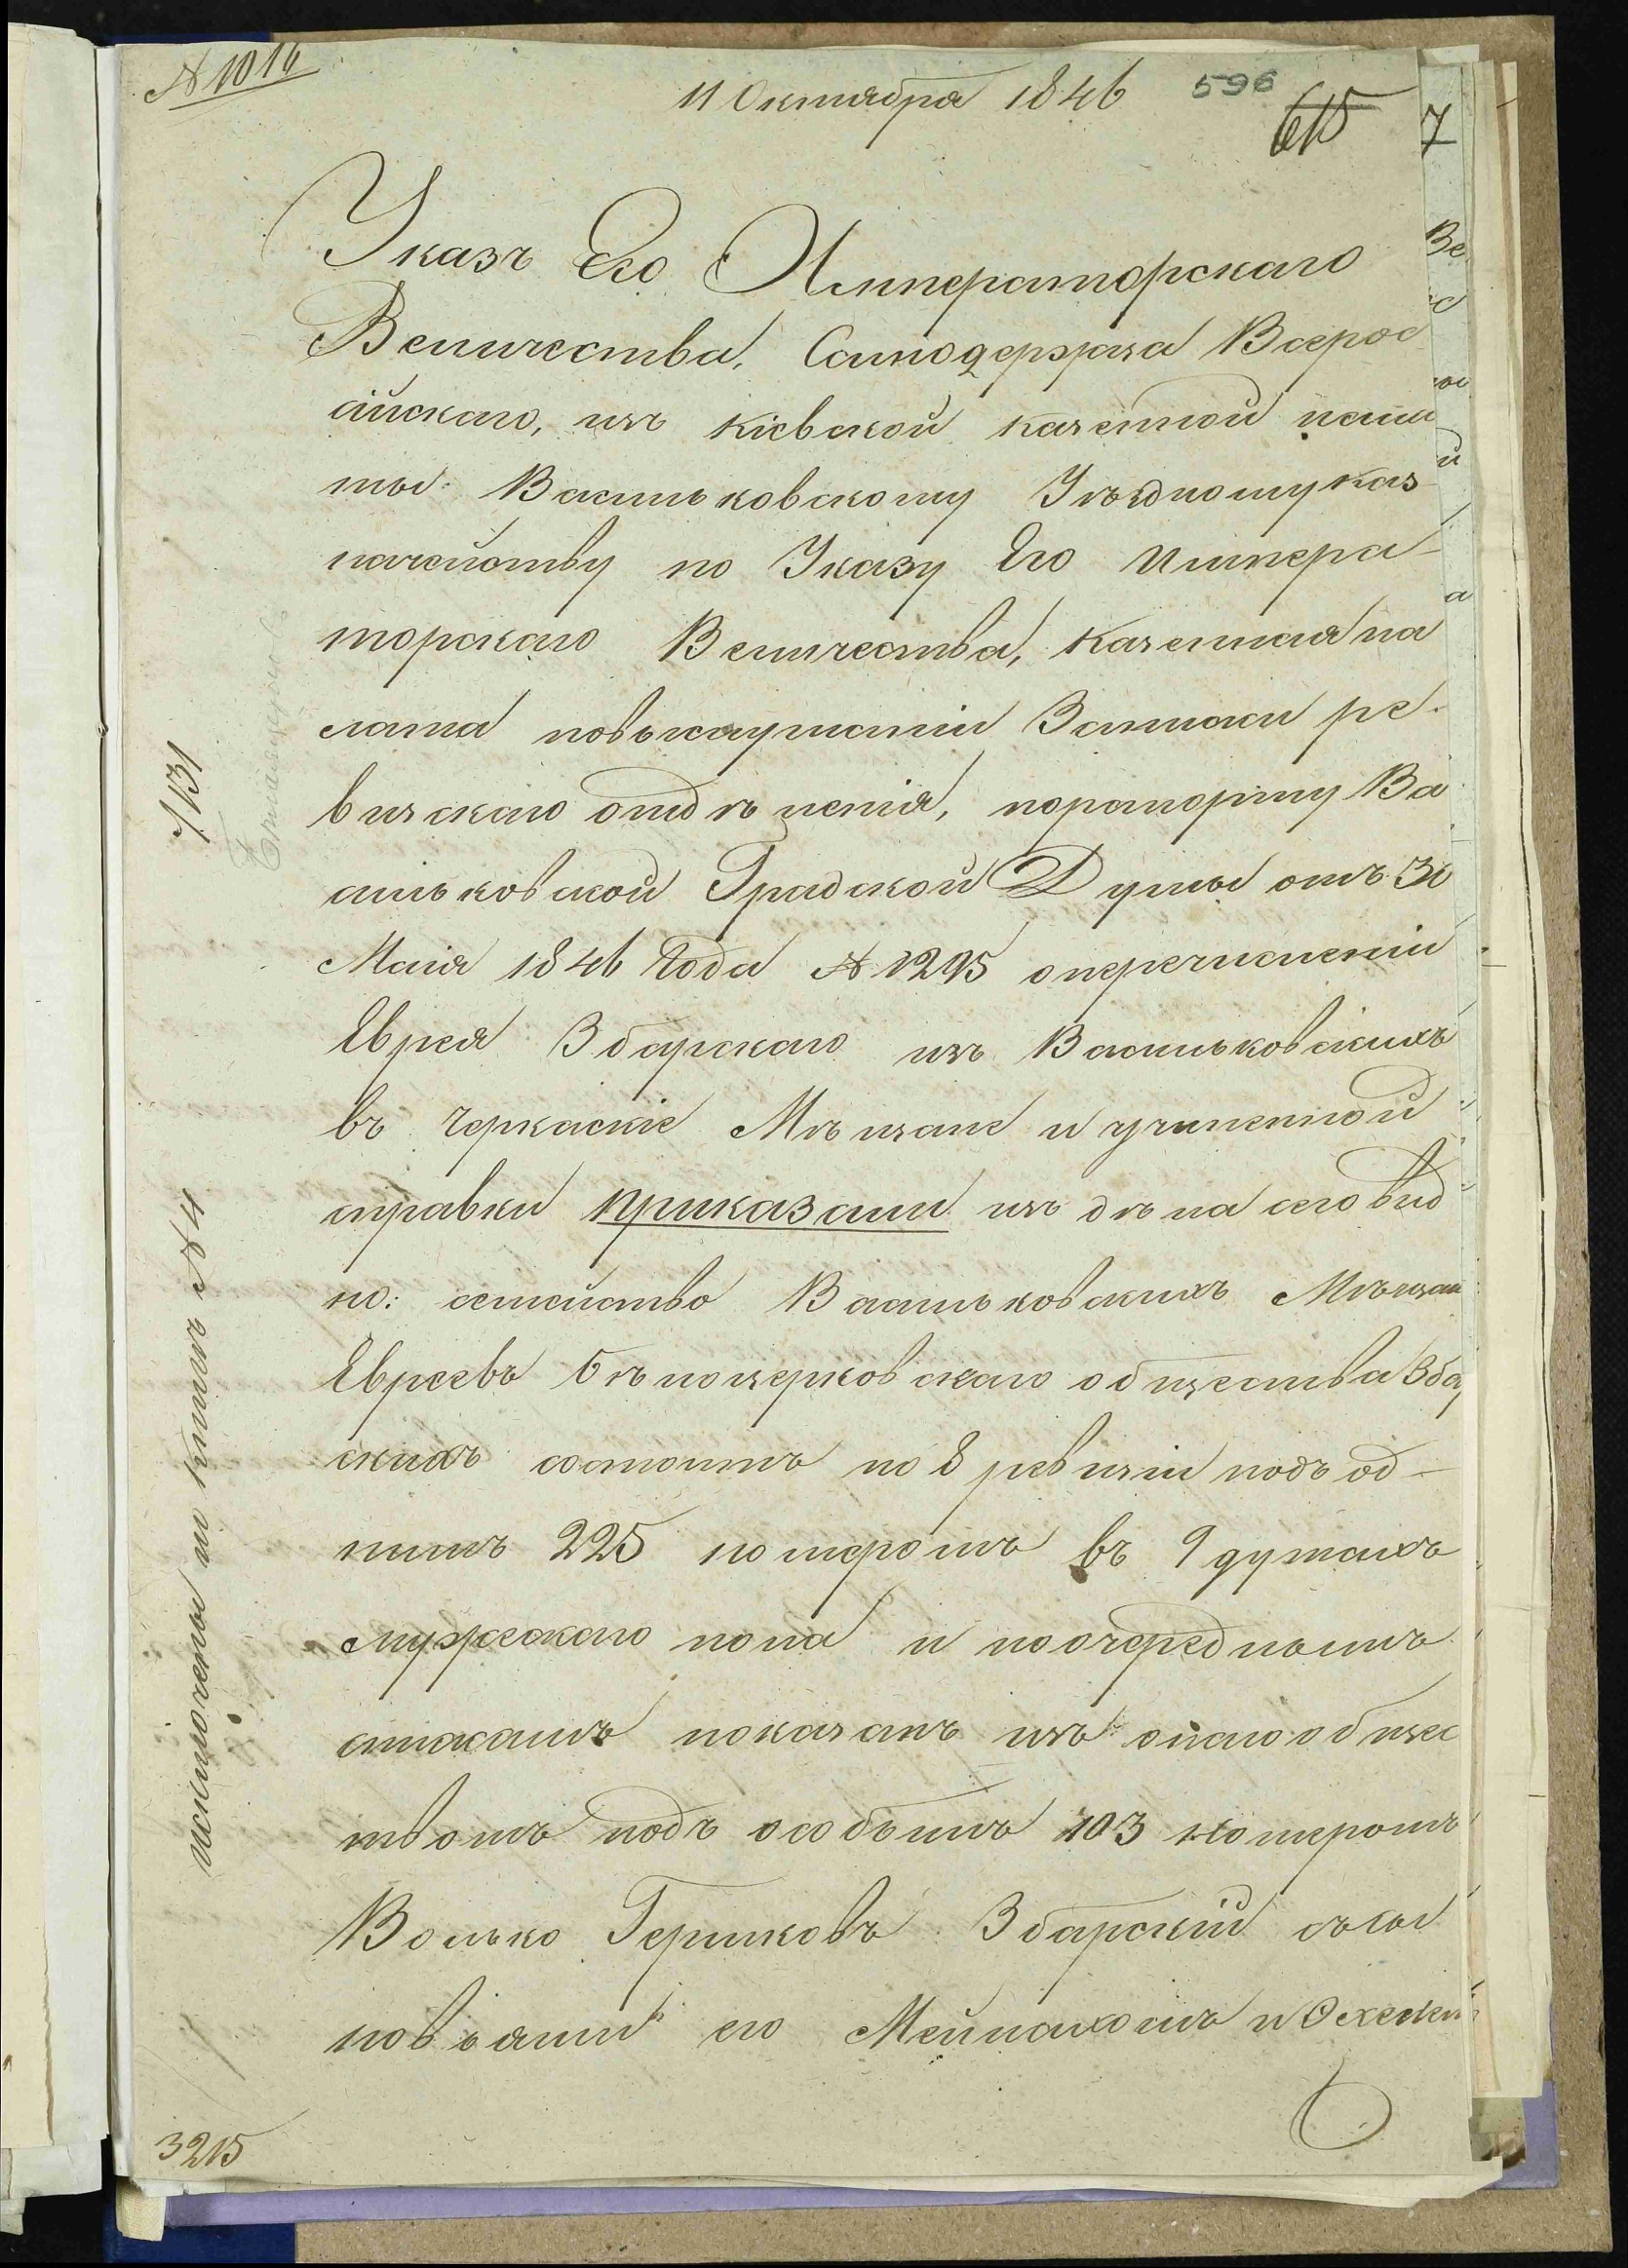 № 1016
11 Октября 1846
596
615
7
Указъ Его Императорскаго
Величества, Самодержца Всерос
сійскаго, изъ Кіевской казенной пала
ты Васильковскому Уѣздному Каз
начейству по Указу Его Импера-
торскаго Величества, Казенная па
лата повыслушаніи Записки ре-
визскаго отдѣленія, порапорту Ва
сильковской Градской Думы отъ 30
Маія 1846 Года № 1295 оперечисленіи
Еврея Збарскаго изъ Васильковскихъ
въ Черкаскіе Мѣщане и учиненной
справки приказали изъ дѣла сего вид
но: семейство Васильковскихъ Мѣщан
Евреевъ Бѣлоцерковскаго общества Збар
скихъ состоитъ по 8 ревизіи подъ од-
нимъ 225 номеромъ въ 9 душахъ
мужескаго пола и поочереднымъ
спискамъ показанъ изъ онаго общес
твомъ подъ особымъ 103 номеромъ
Волько Гершковъ Збарскій съсы
новьями его Мейнахомъ и
1/131
исключены по книгѣ № 4
3215